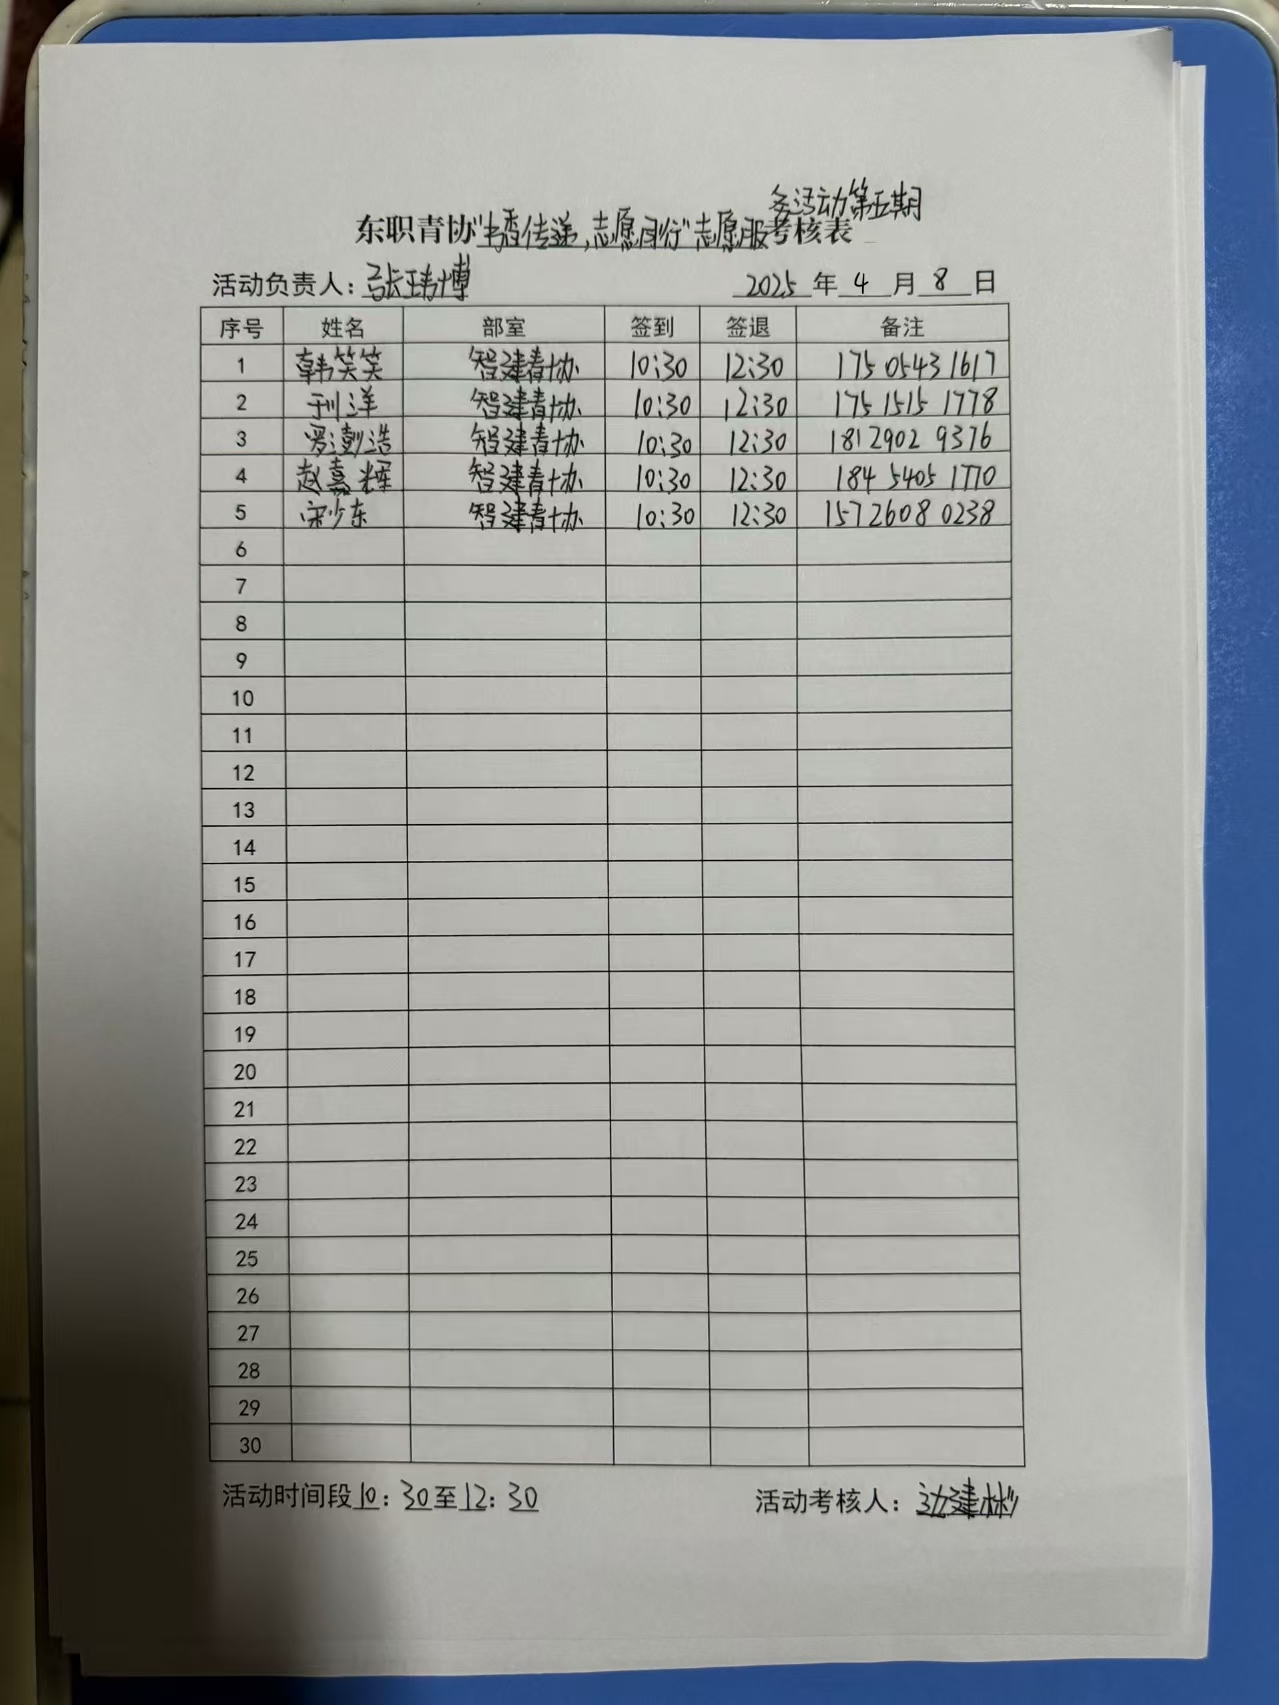 务活动第五期
东职青协"书香传递,志愿同行"志愿服考核表
活动负责人：张玮博 2025 年 4 月 8 日
序号 姓名 部室 签到 签退 备注
1 韩笑笑 智建青协 10:30 12:30 175 0543 1617
2 刊洋 智建青协 10:30 12:30 175 1515 1778
3 罗澎浩 智建青协 10:30 12:30 181 2902 9376
4 赵嘉辉 智建青协 10:30 12:30 184 5405 1770
5 宋少东 智建青协 10:30 12:30 157 2608 0238
6
7
8
9
10
11
12
13
14
15
16
17
18
19
20
21
22
23
24
25
26
27
28
29
30
活动时间段10：30至12：30 活动考核人：边建彬